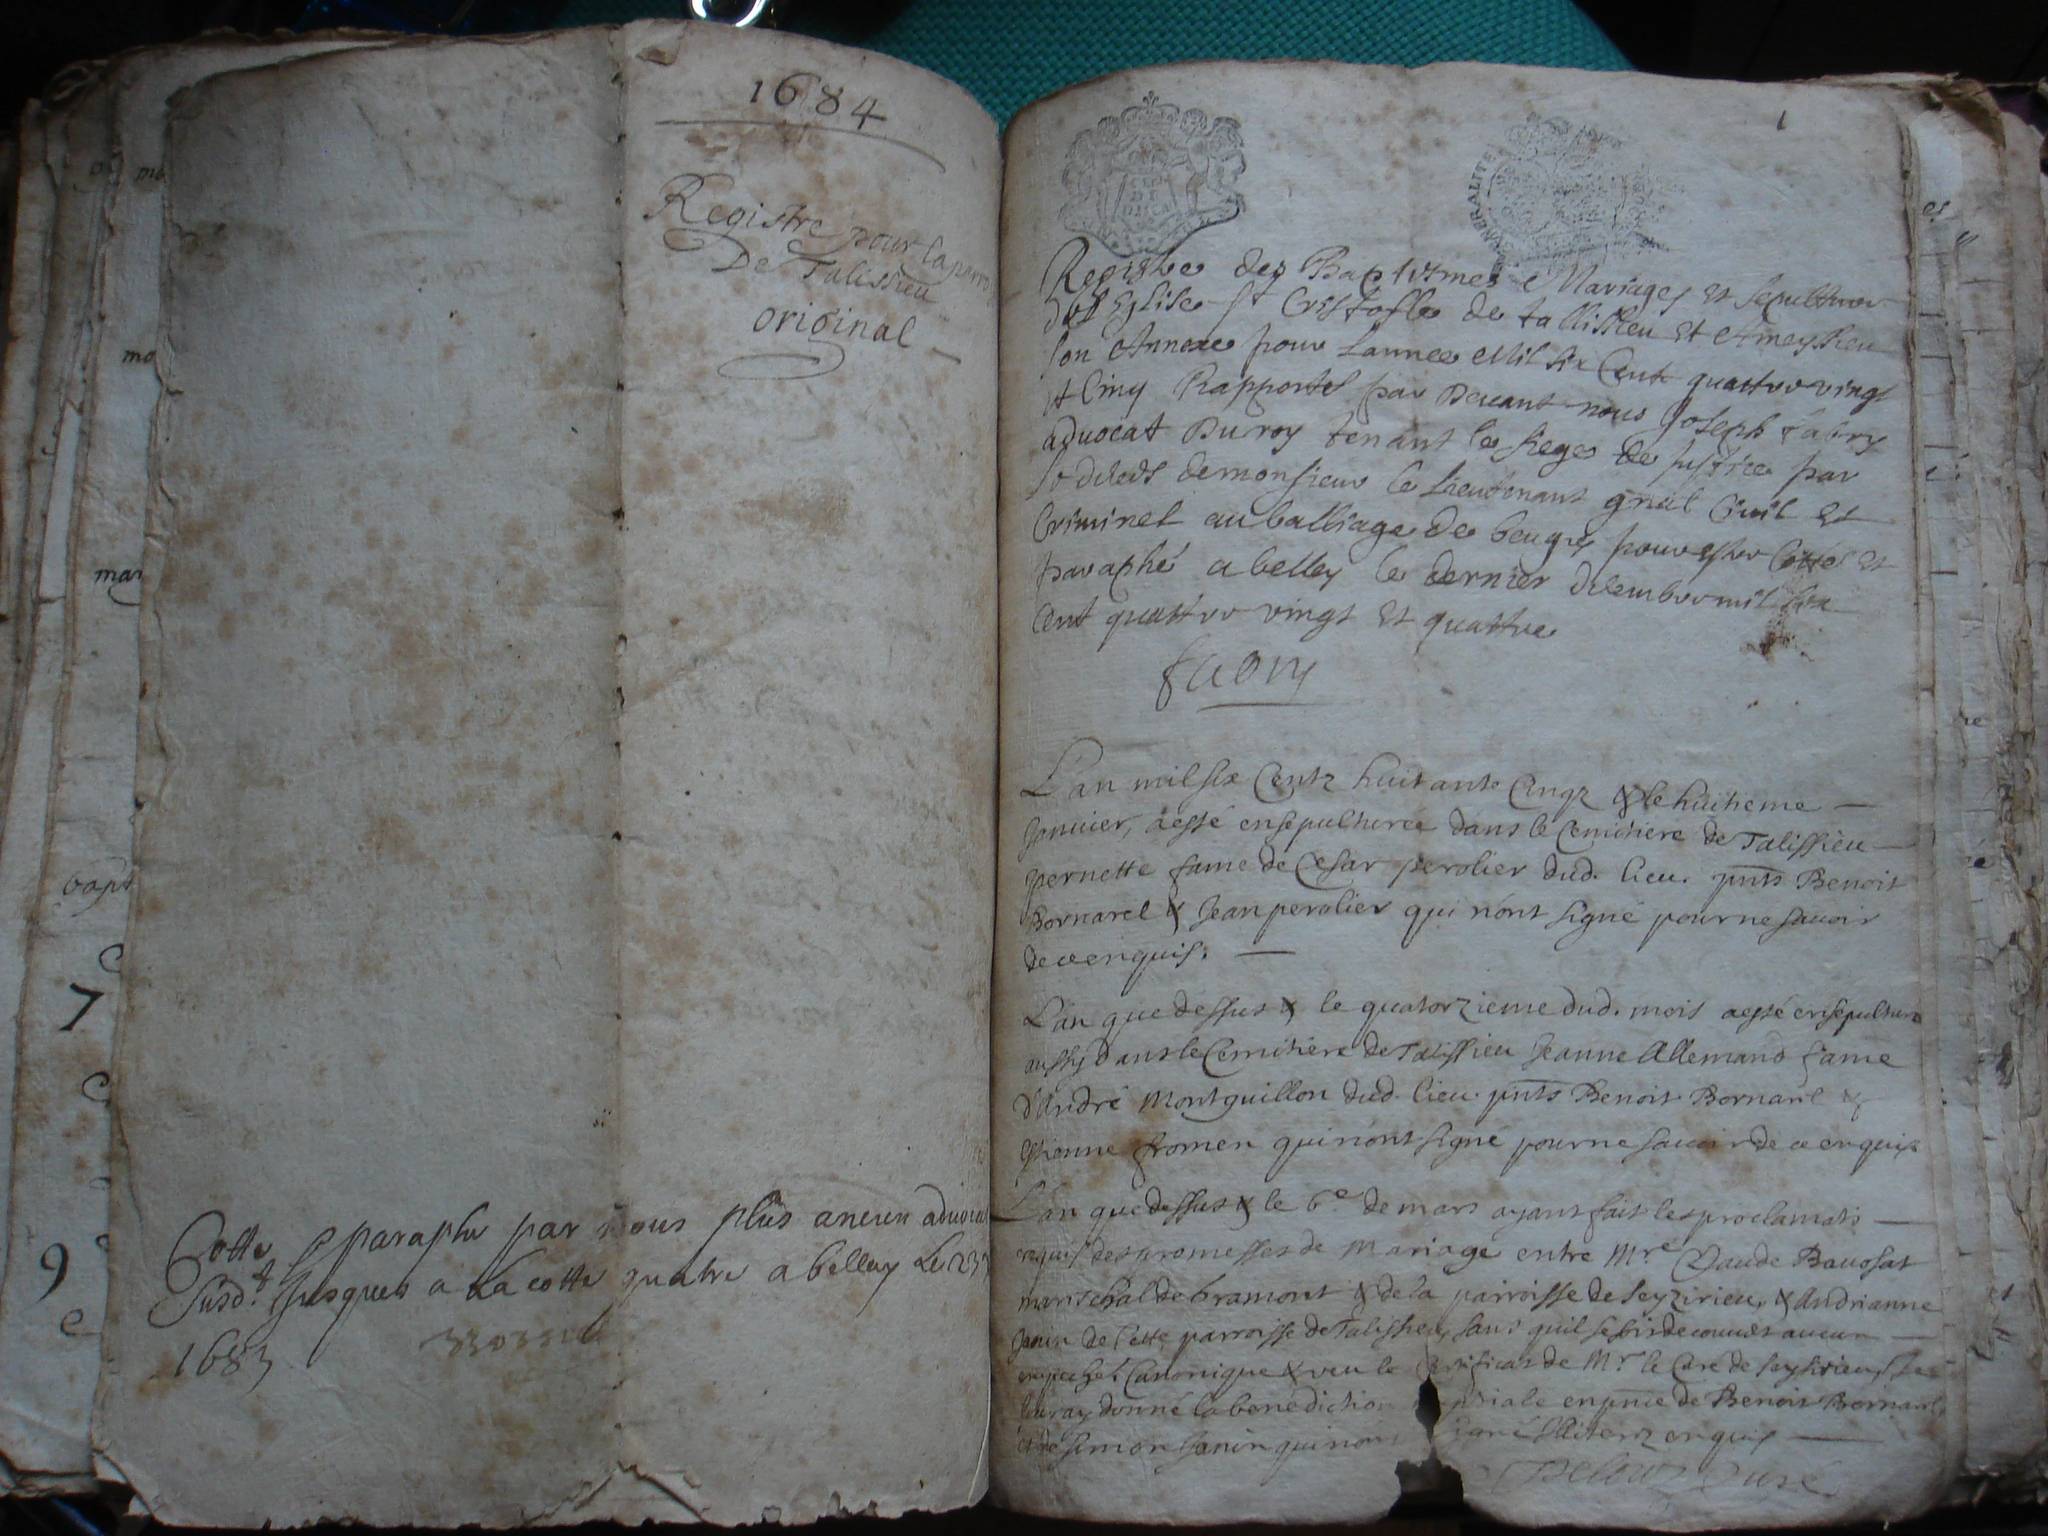 1684
Registre pour la parro
De Talissieu
original
Cotte e paraphe par nous plus ancien advocat
susd.t jusques a la cotte quatre a belley Le 23
1683
1
NERALITE
Registre des Baptismes Mariages et sepultures
de Eglise st Cristofle de tallissieu et Ameyzieu
son Annexe pour Lannee Mil six Cent quattre vingt
et Cinq Rapportes par Devant nous Joseph fabry
advocat Du roy tenant le siege de justice par
le deceds de monsieur le Lieutenant gnal Civil et
Criminel au balliage de beugey pour estre Cotté et
paraphé a belley le dernier decembre mil six
Cent quattre vingt et quattre
fabry
L'an mil six Centz huitante Cinqz & le huitieme
Janvier, a esté ensepulturée dans le Cemitiere de Talissieu
pernette fame de Cesar perolier dud. lieu. pnts Benoit
Bornarel & Jean perolier qui n'ont signé pour ne savoir
de ce enquis.
L'an que dessus & le quatorzieme dud. mois a esté ensepulture
aussy dans le Cemitiere de Talissieu Jeanne Allemand fame
d'André Montguillon dud. lieu. pnts Benoit Bornarel &
Estienne fromen qui n'ont signé pour ne savoir de ce enquis
L'an que dessus & le 6e de mars ayant fait les proclamatis
requis des promesses de Mariage entre Mre Claude Bavosat
marischal de bramont & de la parroisse de Seyzirieu, & Andrianne
Janin de Cette parroisse de Talissieu, sans quil se soit decouvert aucun
empeche. Canonique & veu le Certificat de Mr le Curé de Seyzirieu, Je
leur ay donné la benediction nuptiale en pnce de Benoit Bornarel
et de Simon Janin qui n'ont signé illiterz enquis
Curé